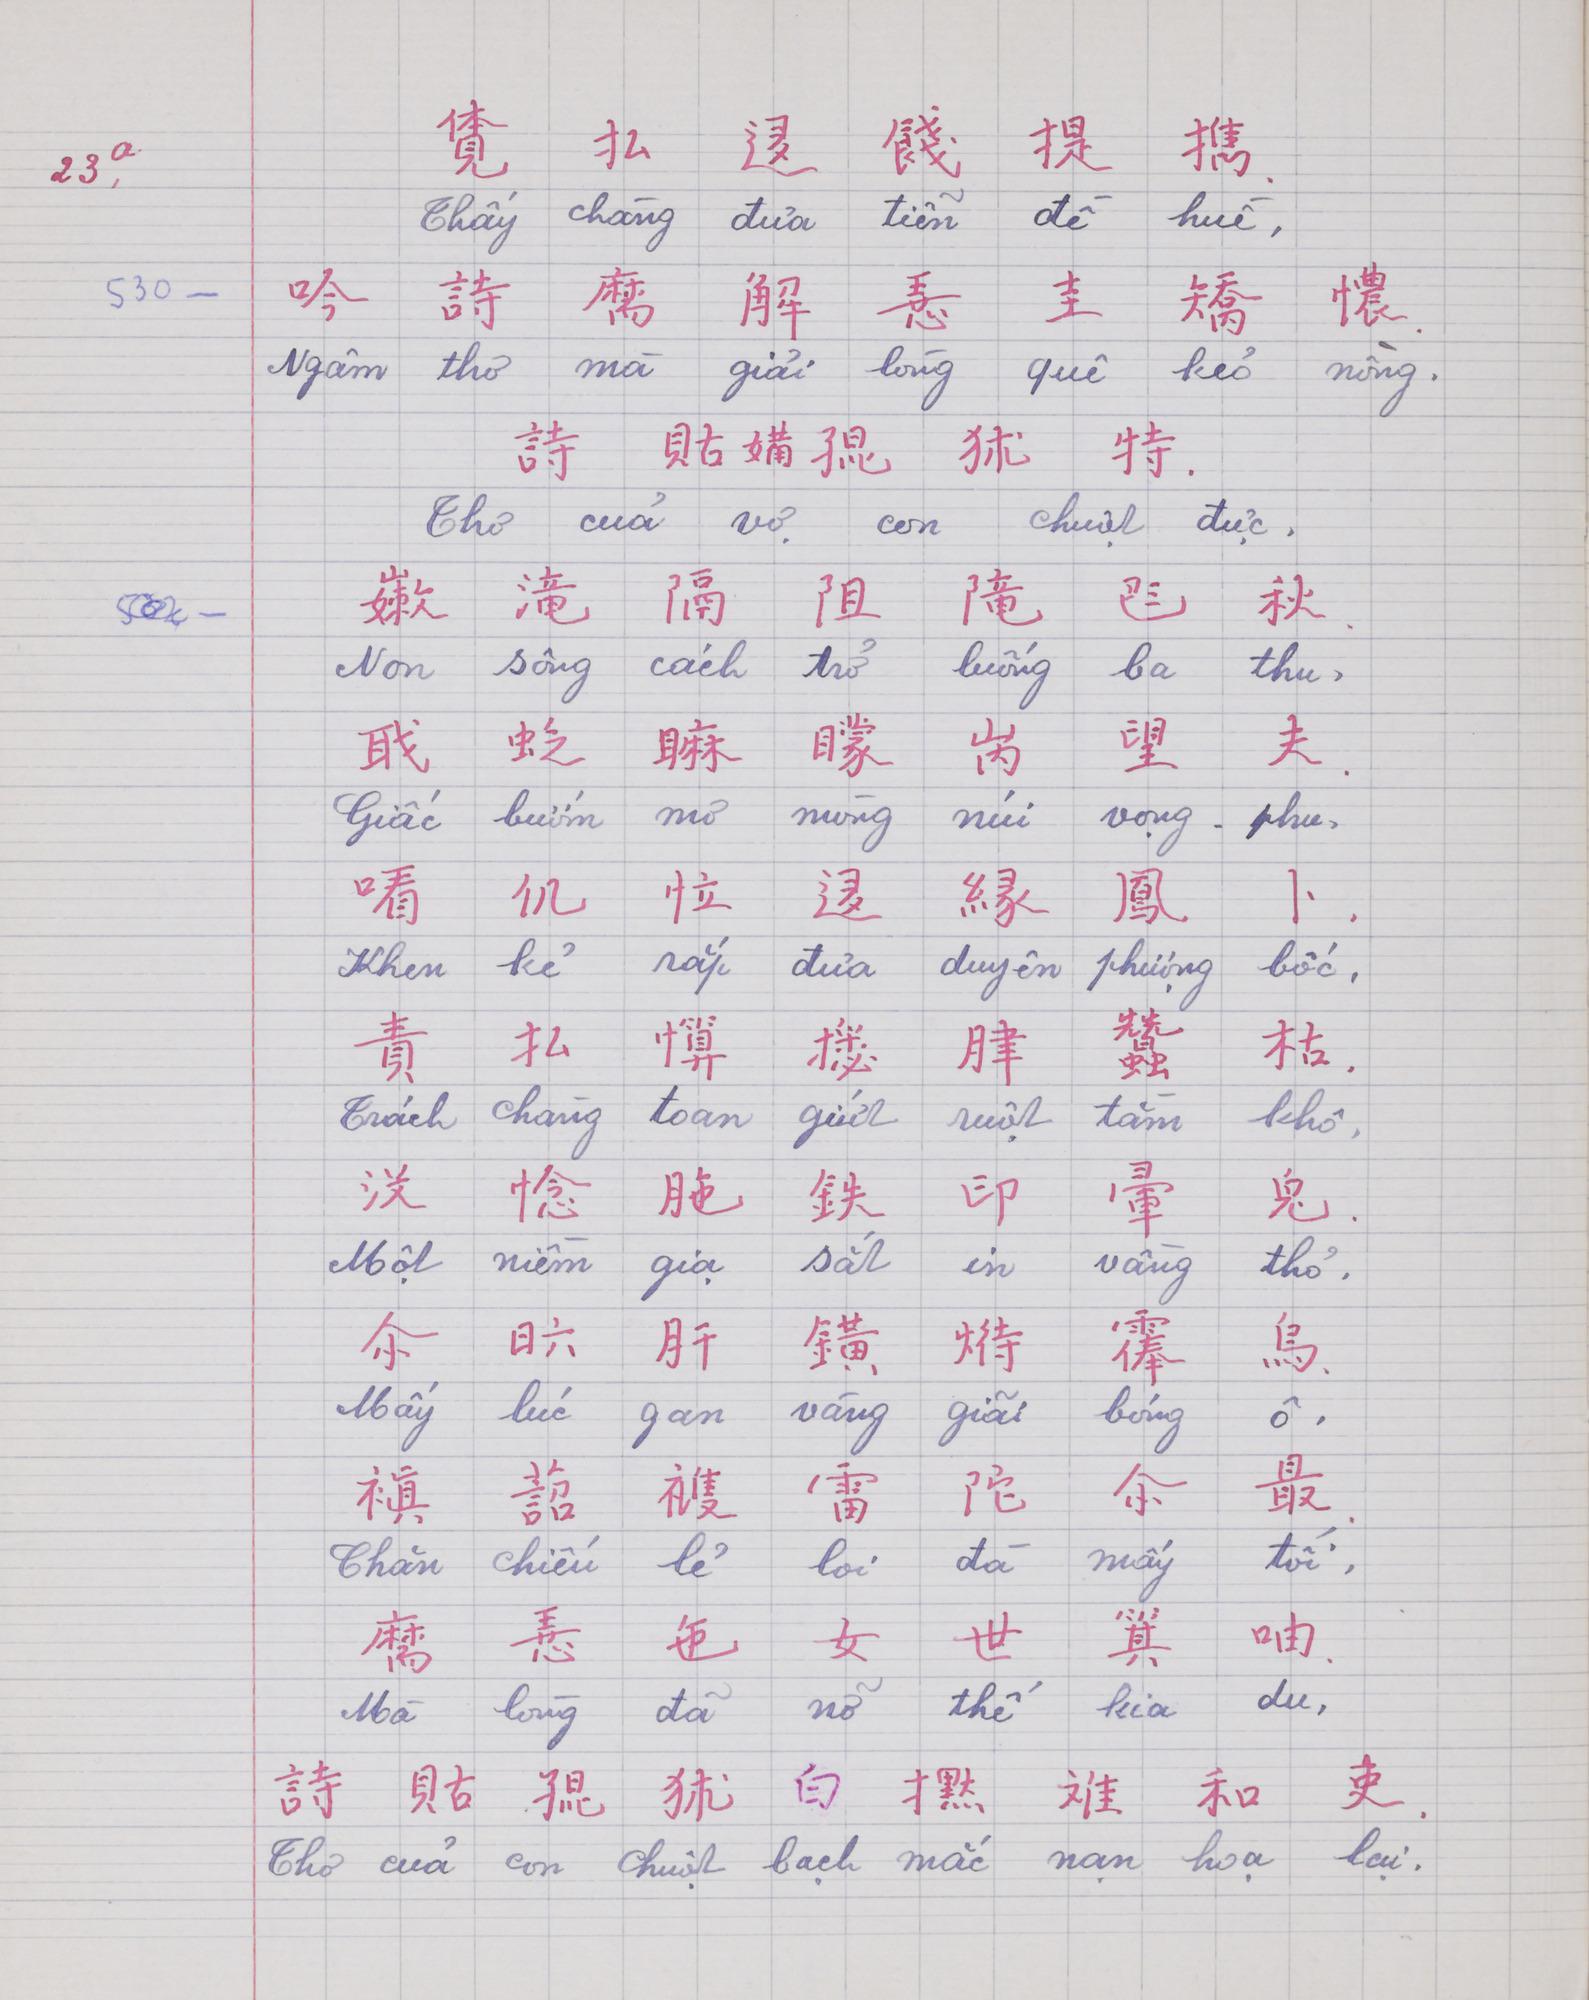 23a,
払 𨖅 餞 提 携.
Thấy chàng đưa tiễn đề huề,
530 – 吟 詩 麽 解 𢚸 圭 矯 憹.
Ngâm thơ mà giải lòng quê kẻo nồng.
詩 貼 媾 猑 㹥 特.
Thơ của vợ con chuột đực.
滝 隔 阻 隴 𠀧 秋.
Non sông cách trở luống ba thu,
望 夫.
Giấc bướm mơ mòng núi vọng - phu,
𠸦 仉 𢘝 𨖅 緣 鳳 卜.
Khen kẻ rắp đưa duyên phượng bốc,
責 払 𢥉 𦛌 蠶 枯.
Trách chàng toan giứt ruột tằm khô,
𣵰 惗 胣 鉄 印 暈 兔.
Một niềm giạ sắt in vầng thỏ,
尒 𣅶 肝 鐄 烏.
Mấy lúc gan vàng giãi bóng ô,
𥚆 雷 陀 尒 最.
Chăn chiếu lẻ loi đà mấy tối,
麽 𢚸 女 世 箕 呦.
Mà lòng đã nỡ thế kia du,
詩 貼 猑 㹥 白 難 和 吏.
Thơ của con chuột bạch mắc nạn hoạ lại.